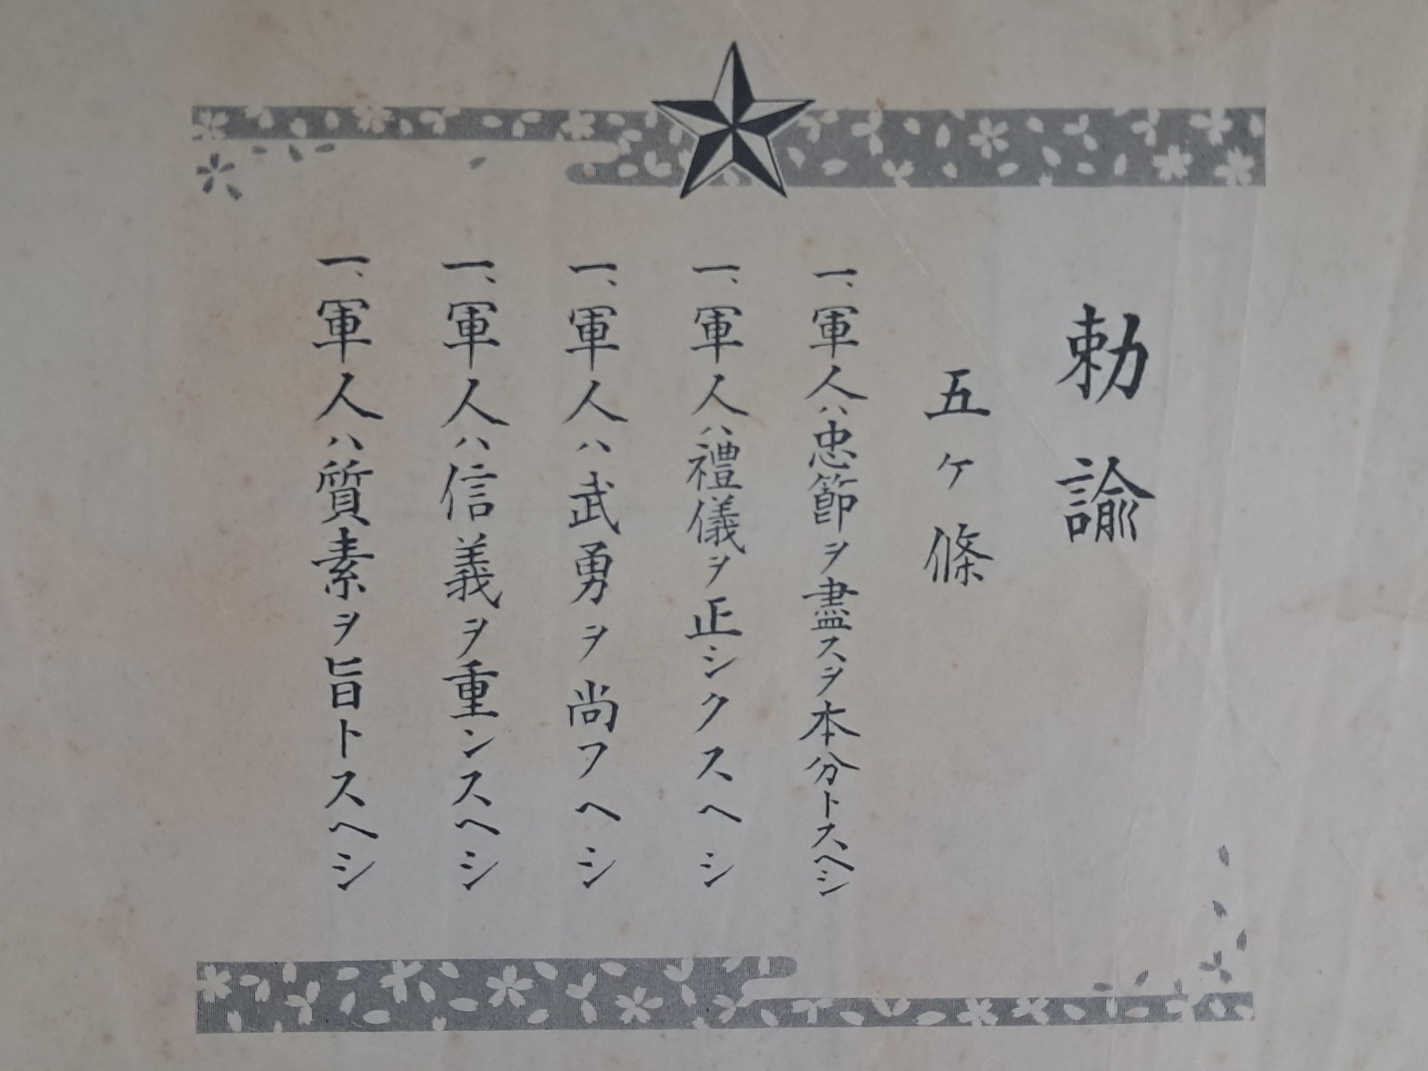 勅諭
五ヶ條
一、軍人ハ忠節ヲ盡スヲ本分トスヘシ
一、軍人ハ禮儀ヲ正シクスヘシ
一、軍人ハ武勇ヲ尚フヘシ
一、軍人ハ信義ヲ重ンスヘシ
一、軍人ハ質素ヲ旨トスヘシ